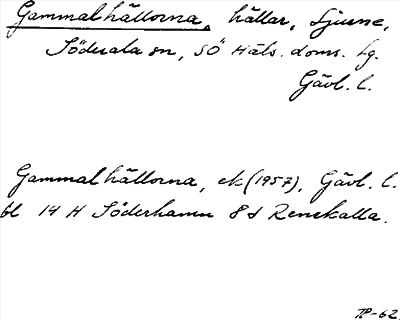 Gammalhällorna, hällar, Ljusne,
Söderala sn, SÖ Häls. doms. Lg.
Gävl. l.
Gammalhällorna, ek (1957), Gävl. l.
bl 14 H Söderhamn 8 d Renskalla.
TP-62